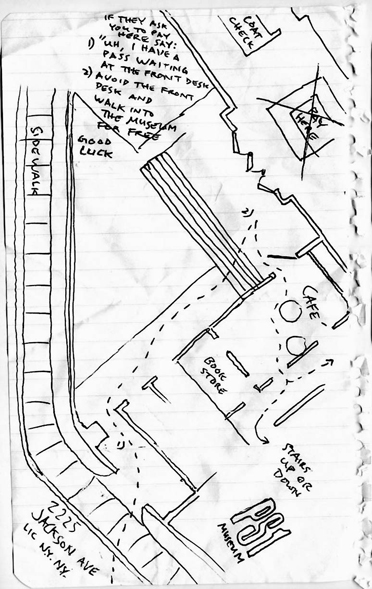 IF THEY ASK
YOU TO PAY
HERE SAY:
1) "UH, I HAVE A
PASS WAITING
AT THE FRONT DESK
2) AVOID THE FRONT
DESK AND
WALK INTO
THE MUSEUM
FOR FREE
GOOD
LUCK
COAT
CHECK
PAY
HERE
SIDEWALK
2)
CAFE
BOOK
STORE
1)
STAIRS
UP OR
DOWN
PS1
MUSEUM
2225
JACKSON AVE
LIC NY. NY.